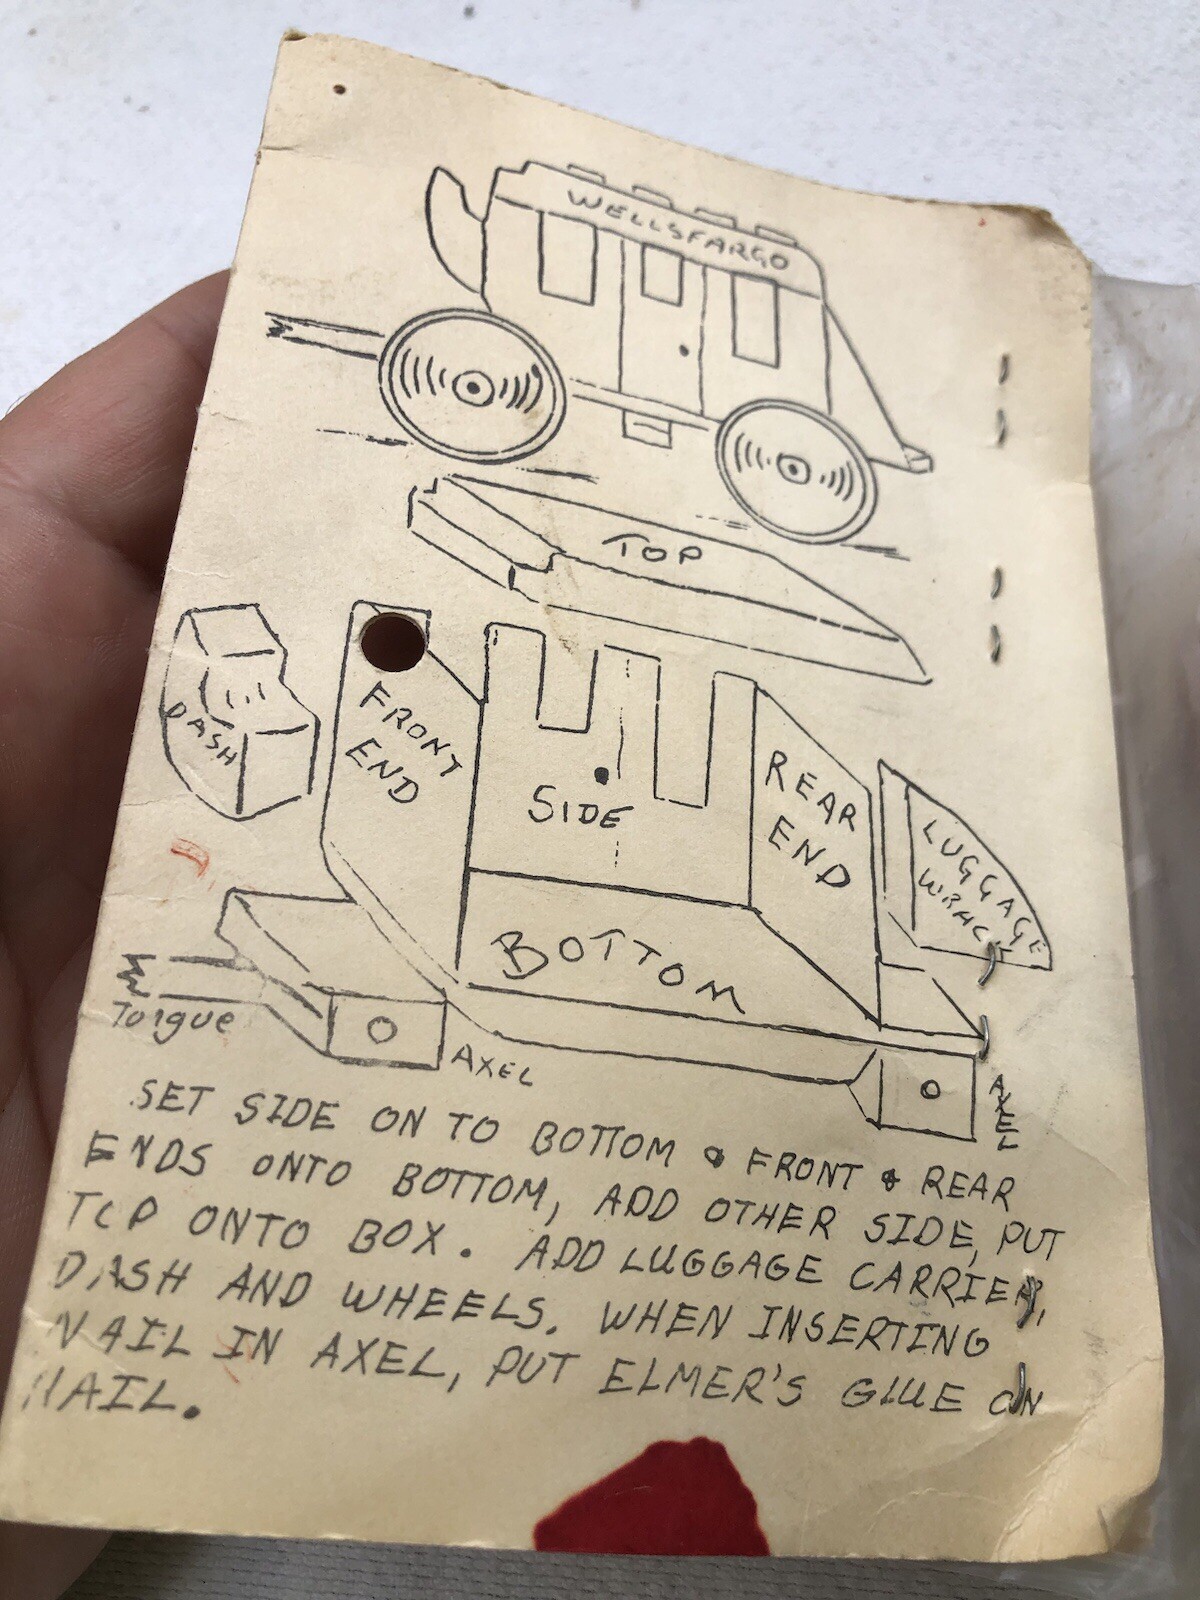 WELLSFARGO
TOP
DASH
FRONT
END
SIDE
REAR
END
LUGGAGE
WRACK
BOTTOM
Tongue
AXEL
AXEL
SET SIDE ON TO BOTTOM & FRONT & REAR
ENDS ONTO BOTTOM, ADD OTHER SIDE, PUT
TOP ONTO BOX. ADD LUGGAGE CARRIER,
DASH AND WHEELS. WHEN INSERTING
NAIL IN AXEL, PUT ELMER'S GLUE ON
NAIL.